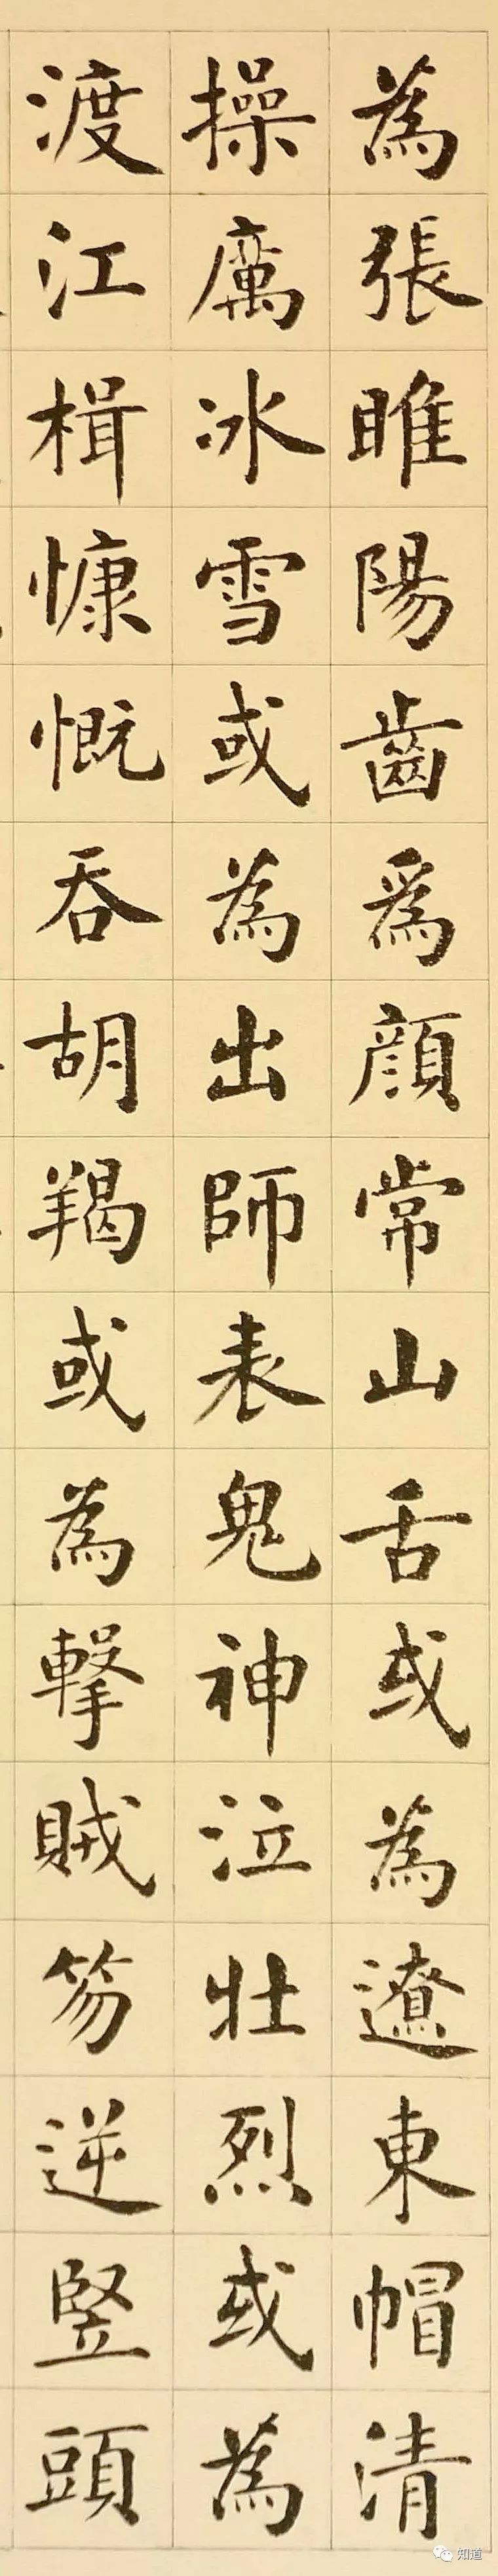 為張睢陽齒爲顔常山舌或為遼東帽清
操厲冰雪或為出師表鬼神泣壯烈或為
渡江楫慷慨吞胡羯或為擊賊笏逆豎頭
知道